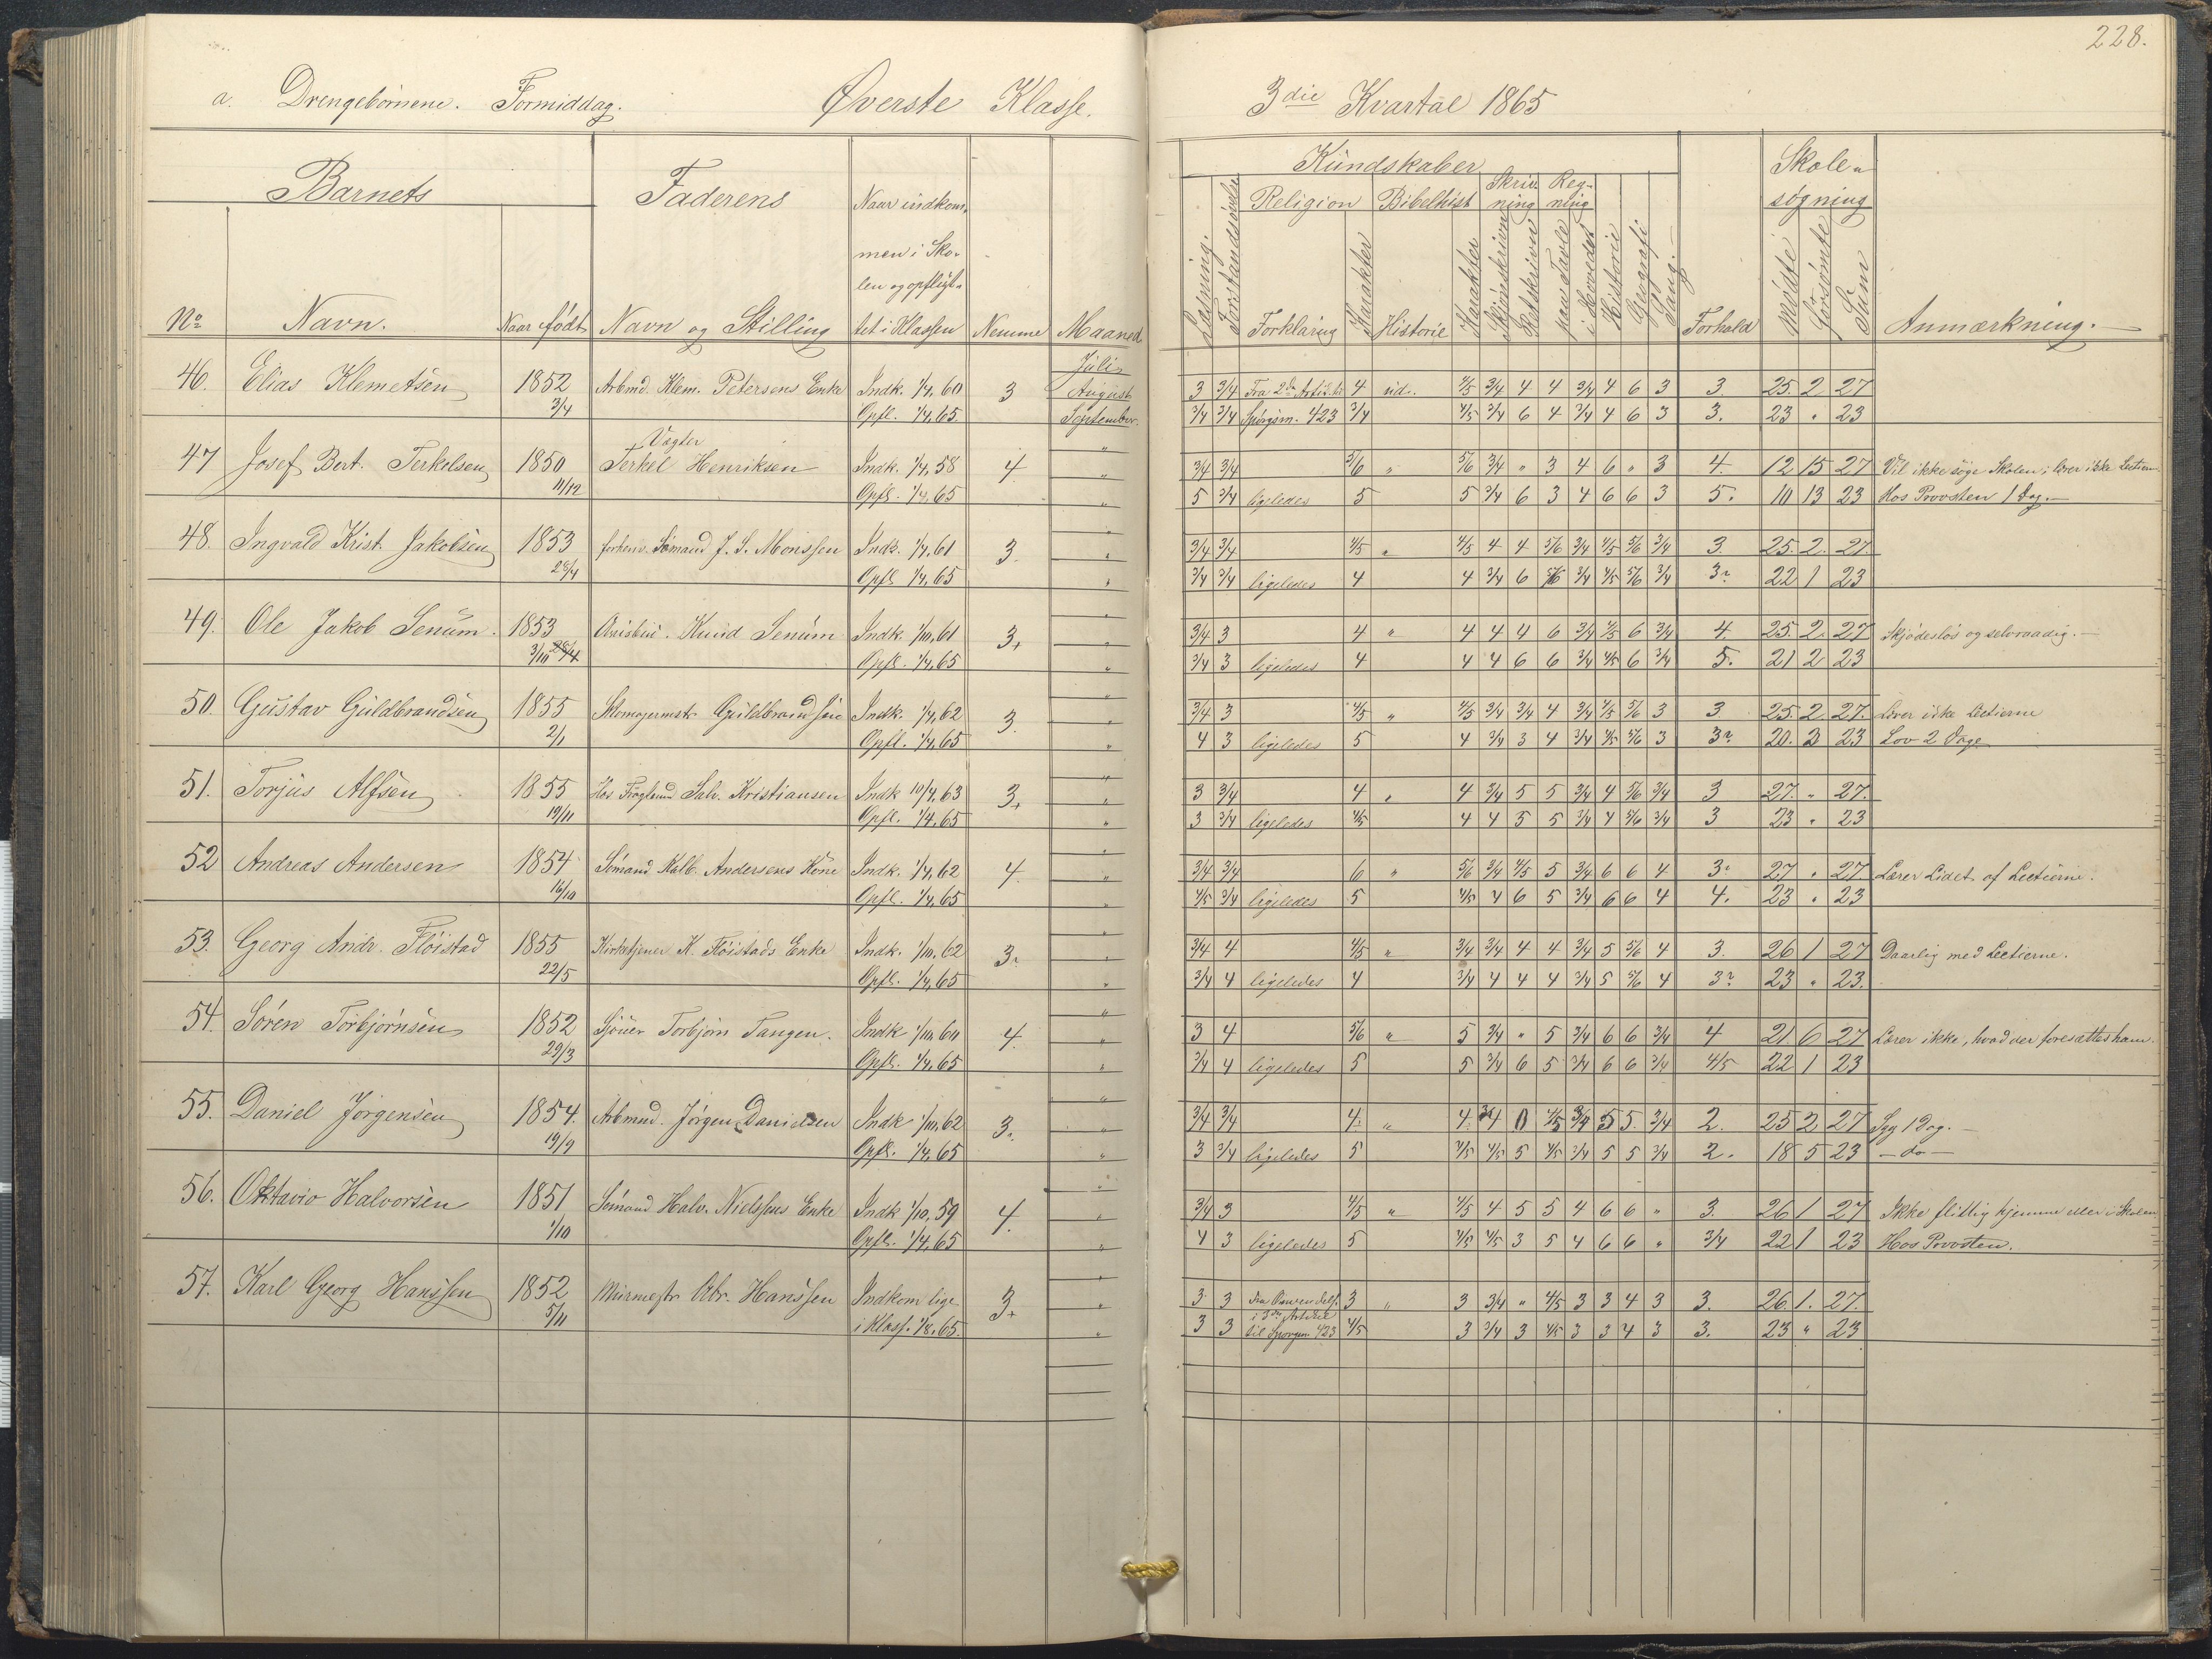 228.
a. Drengebørnene. Formiddag. Øverste Klasse. 3die Kvartal 1865
Barnets Faderens Naar indkommen i Skolen og opflyttet i Klassen Nemme Maaned
No Navn. Naar født Navn og Stilling
Kundskaber Skolesøgning
Religion Bibelhist Skrivning Regning
Læsning. Forstandsøvelse Forklaring Karakter Historie Karakter Skjønskrivn Retskrivn paa Tavle i Hovedet Historie Geografi Sang. Forhold mødte forsømte Sum Anmærkning.
Juli
46. Elias Klemetsen 1852 Arbmd. Klem. Petersens Enke Indk. 1/4, 60 3 August 3 3/4 Fra 2den Art. 4 ud. 4/5 3/4 4 4 3/4 4 6 3 3. 25. 2 27
3/4 Opfl. 1/4, 65. September. 3/4 3/4 Spørgsm. 423 3/4 4/5 3/4 6 4 3/4 4 6 3 3. 23 " 23
Vægter
47 Josef Bert. Terkelsen 1850 Terkel Henriksen Indk. 1/4, 58 4. " 3/4 3/4 5/6 " 5/6 3/4 " 3 4 6 " 3 4. 12 15 27 Vil ikke søge Skolen; lærer ikke Lectien.
11/12 Opfl. 1/4, 65 " 5 3/4 ligeledes 5 5 3/4 6 3 4 6 6 3 5. 10 13 23 Hos Provsten 1 Dag.
48. Ingvald Krist. Jakobsen 1853 forhenv. Sømand J. S. Monssen Indk. 1/4, 61 3. " 3/4 3/4 4/5 " 4/5 4 4 5/6 3/4 4/5 5/6 3/4 3. 25. 2. 27.
28/4 Opfl. 1/4, 65 " 3/4 3/4 ligeledes 4 4 3/4 6 5/6 3/4 4/5 5/6 3/4 3? 22 1 23
49. Ole Jakob Senum. 1853 Knud Senum Indk. 1/10, 61 3+ " 3/4 3 4 " 4 4 4 6 3/4 4/5 6 3/4 4 25. 2. 27 Skjødesløs og selvraadig.
3/10 28/4 Opfl. 1/4, 65 " 3/4 3 ligeledes 4 4 4 6 6 3/4 4/5 6 3/4 5. 21 2 23
50. Gustav Guldbrandsen 1855 Skomagermstr Guldbrandsen Indk. 1/4, 62 3. " 3/4 3 4/5 " 4/5 3/4 3/4 4 3/4 4/5 5/6 3 3 25. 2. 27. Lærer ikke Lectierne
2/1 Opfl. 1/4, 65 " 4 3 ligeledes 5 4 3/4 3 4 3/4 4/5 5/6 3 3? 20. 3 23 Lov 2 Dage
51. Torjus Alfsen 1855 Hos Salv. Kristiansen Indk 10/4, 63 3+ " 3 3/4 4 " 4 3/4 5 5 3/4 4 5/6 3/4 3 27. " 27.
19/11 Opfl. 1/4, 65 " 3 3/4 ligeledes 4/5 4 4 5 5 3/4 4 5/6 3/4 3 23 " 23
52 Andreas Andersen 1854 Sømand Andersens Kone Indk. 1/4, 62 4. " 3/4 3/4 6 " 5/6 3/4 4/5 5 3/4 6 6 4 3? 27 " 27 Lærer Lidet af Lectierne.
16/10 Opfl. 1/4, 65 " 4/5 3/4 ligeledes 5 4/5 4 6 5 3/4 6 6 4 4. 23 " 23
53. Georg Andr. Fløistad 1855 Kirketjener K. Fløistads Enke Indk. 1/10, 62 3? " 3/4 4 4/5 " 3/4 3/4 4 4 3/4 5 5/6 4 3. 26 1 27 Daarlig med Lectierne.
22/5 Opfl. 1/4, 65 " 3/4 4 ligeledes 4 3/4 4 4 4 3/4 5 5/6 4 3? 23 " 23.
54. Søren Torbjørnsen 1852 Torbjørn Tangen. Indk 1/10, 60 4. " 3 4 5/6 " 5 3/4 " 5 3/4 6 6 3/4 4 21 6 27 Lærer ikke, hvad der foresættes ham.
29/3 Opfl. 1/4, 65 " 3/4 4 ligeledes 5 5 3/4 6 5 3/4 6 6 3/4 4/5 22 1 23
55. Daniel Jørgensen 1854. Arbmnd. Jørgen Danielsen Indk 1/10, 62 3. " 3/4 3/4 4. " 4. 3/4 0 4/5 3/4 5 5. 3/4 2. 25 2 27 Syg 1 Dag.
19/9 Opfl. 1/4, 65 " 3 3/4 ligeledes 5 4/5 4/5 5 4/5 3/4 5 5 3/4 2. 18 5 23 — do —
56. Oktavio Halvorsen 1851 Sømand Halv. Nielsens Enke Indk 1/10, 59 4. " 3/4 3 4/5 " 4/5 4 5 5 4 6 6 " 3 26 1 27 Ikke flittig hjemme eller i Skolen
1/10 Opfl. 1/4, 65 " 4 3 ligeledes 5 4/5 4/5 3 5 4 6 6 " 3/4 22 1 23 Hos Provsten.
57. Karl Georg Hanssen 1852 Murmestr Abr. Hanssen Indkom lige 3+ " 3 3 3 " 3 3/4 " 4/5 3 3 4 3 3. 26. 1. 27.
5/11 i Klass. 1/8, 65. " 3 3 i 3die Artikel til Spørgsm 423 4/5 3 3/4 3 4/5 3 3 4 3 3. 23 " 23